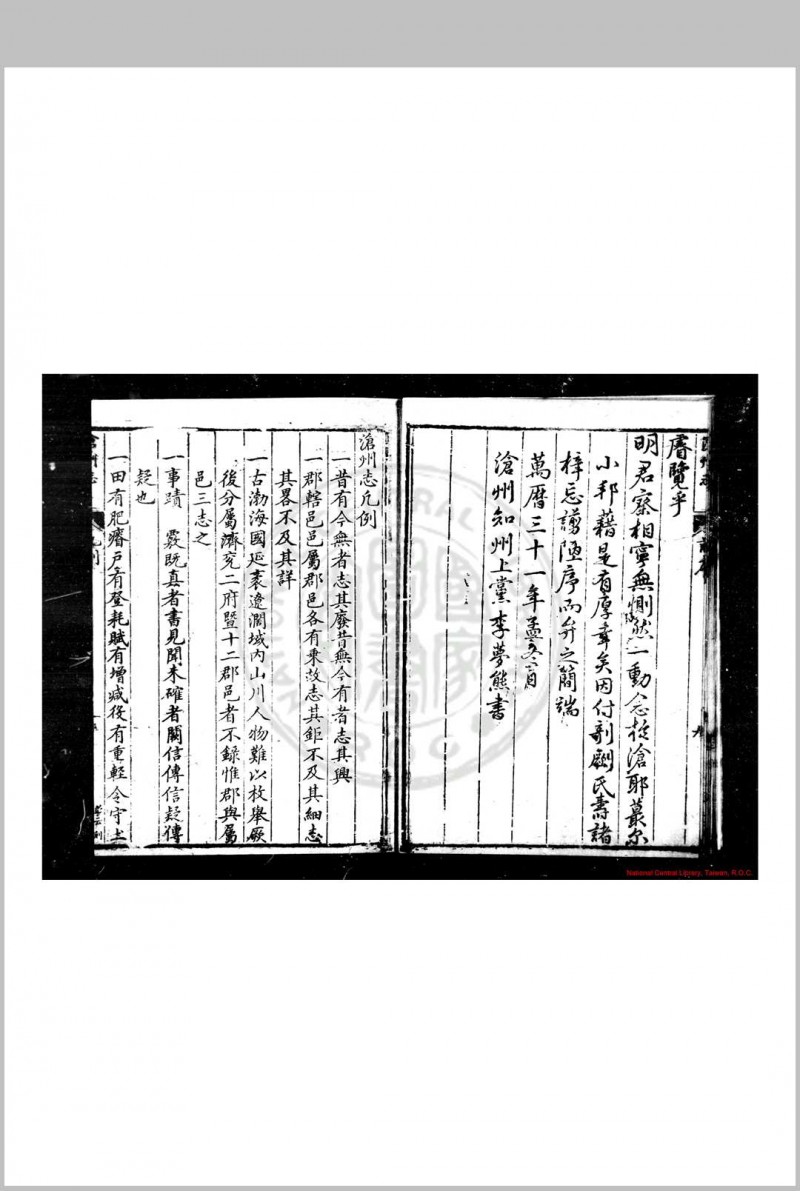 睿覽乎
明君察相寧無惻然一動念於滄耶蕞尔
小邦藉是有厚幸矣因付剞劂氏壽諸
梓忘謭陋序而弁之簡端
萬曆三十一年孟冬月
滄州知州上黨李夢熊書
滄州志凡例
一昔有今無者志其廢昔無今有者志其興
一郡轄邑邑屬郡邑各有乘故志其鉅不及其細志
其畧不及其詳
一古渤海國延袤遼濶域內山川人物難以枚舉厥
後分屬濟兗二府暨十二郡邑者不錄惟郡與屬
邑三志之
一事蹟覈既真者書見聞未確者闕信傳信疑傳
疑也
一田有肥瘠戸有登耗賦有增減役有重輕令守土
National Central Library, Taiwan, R.O.C.